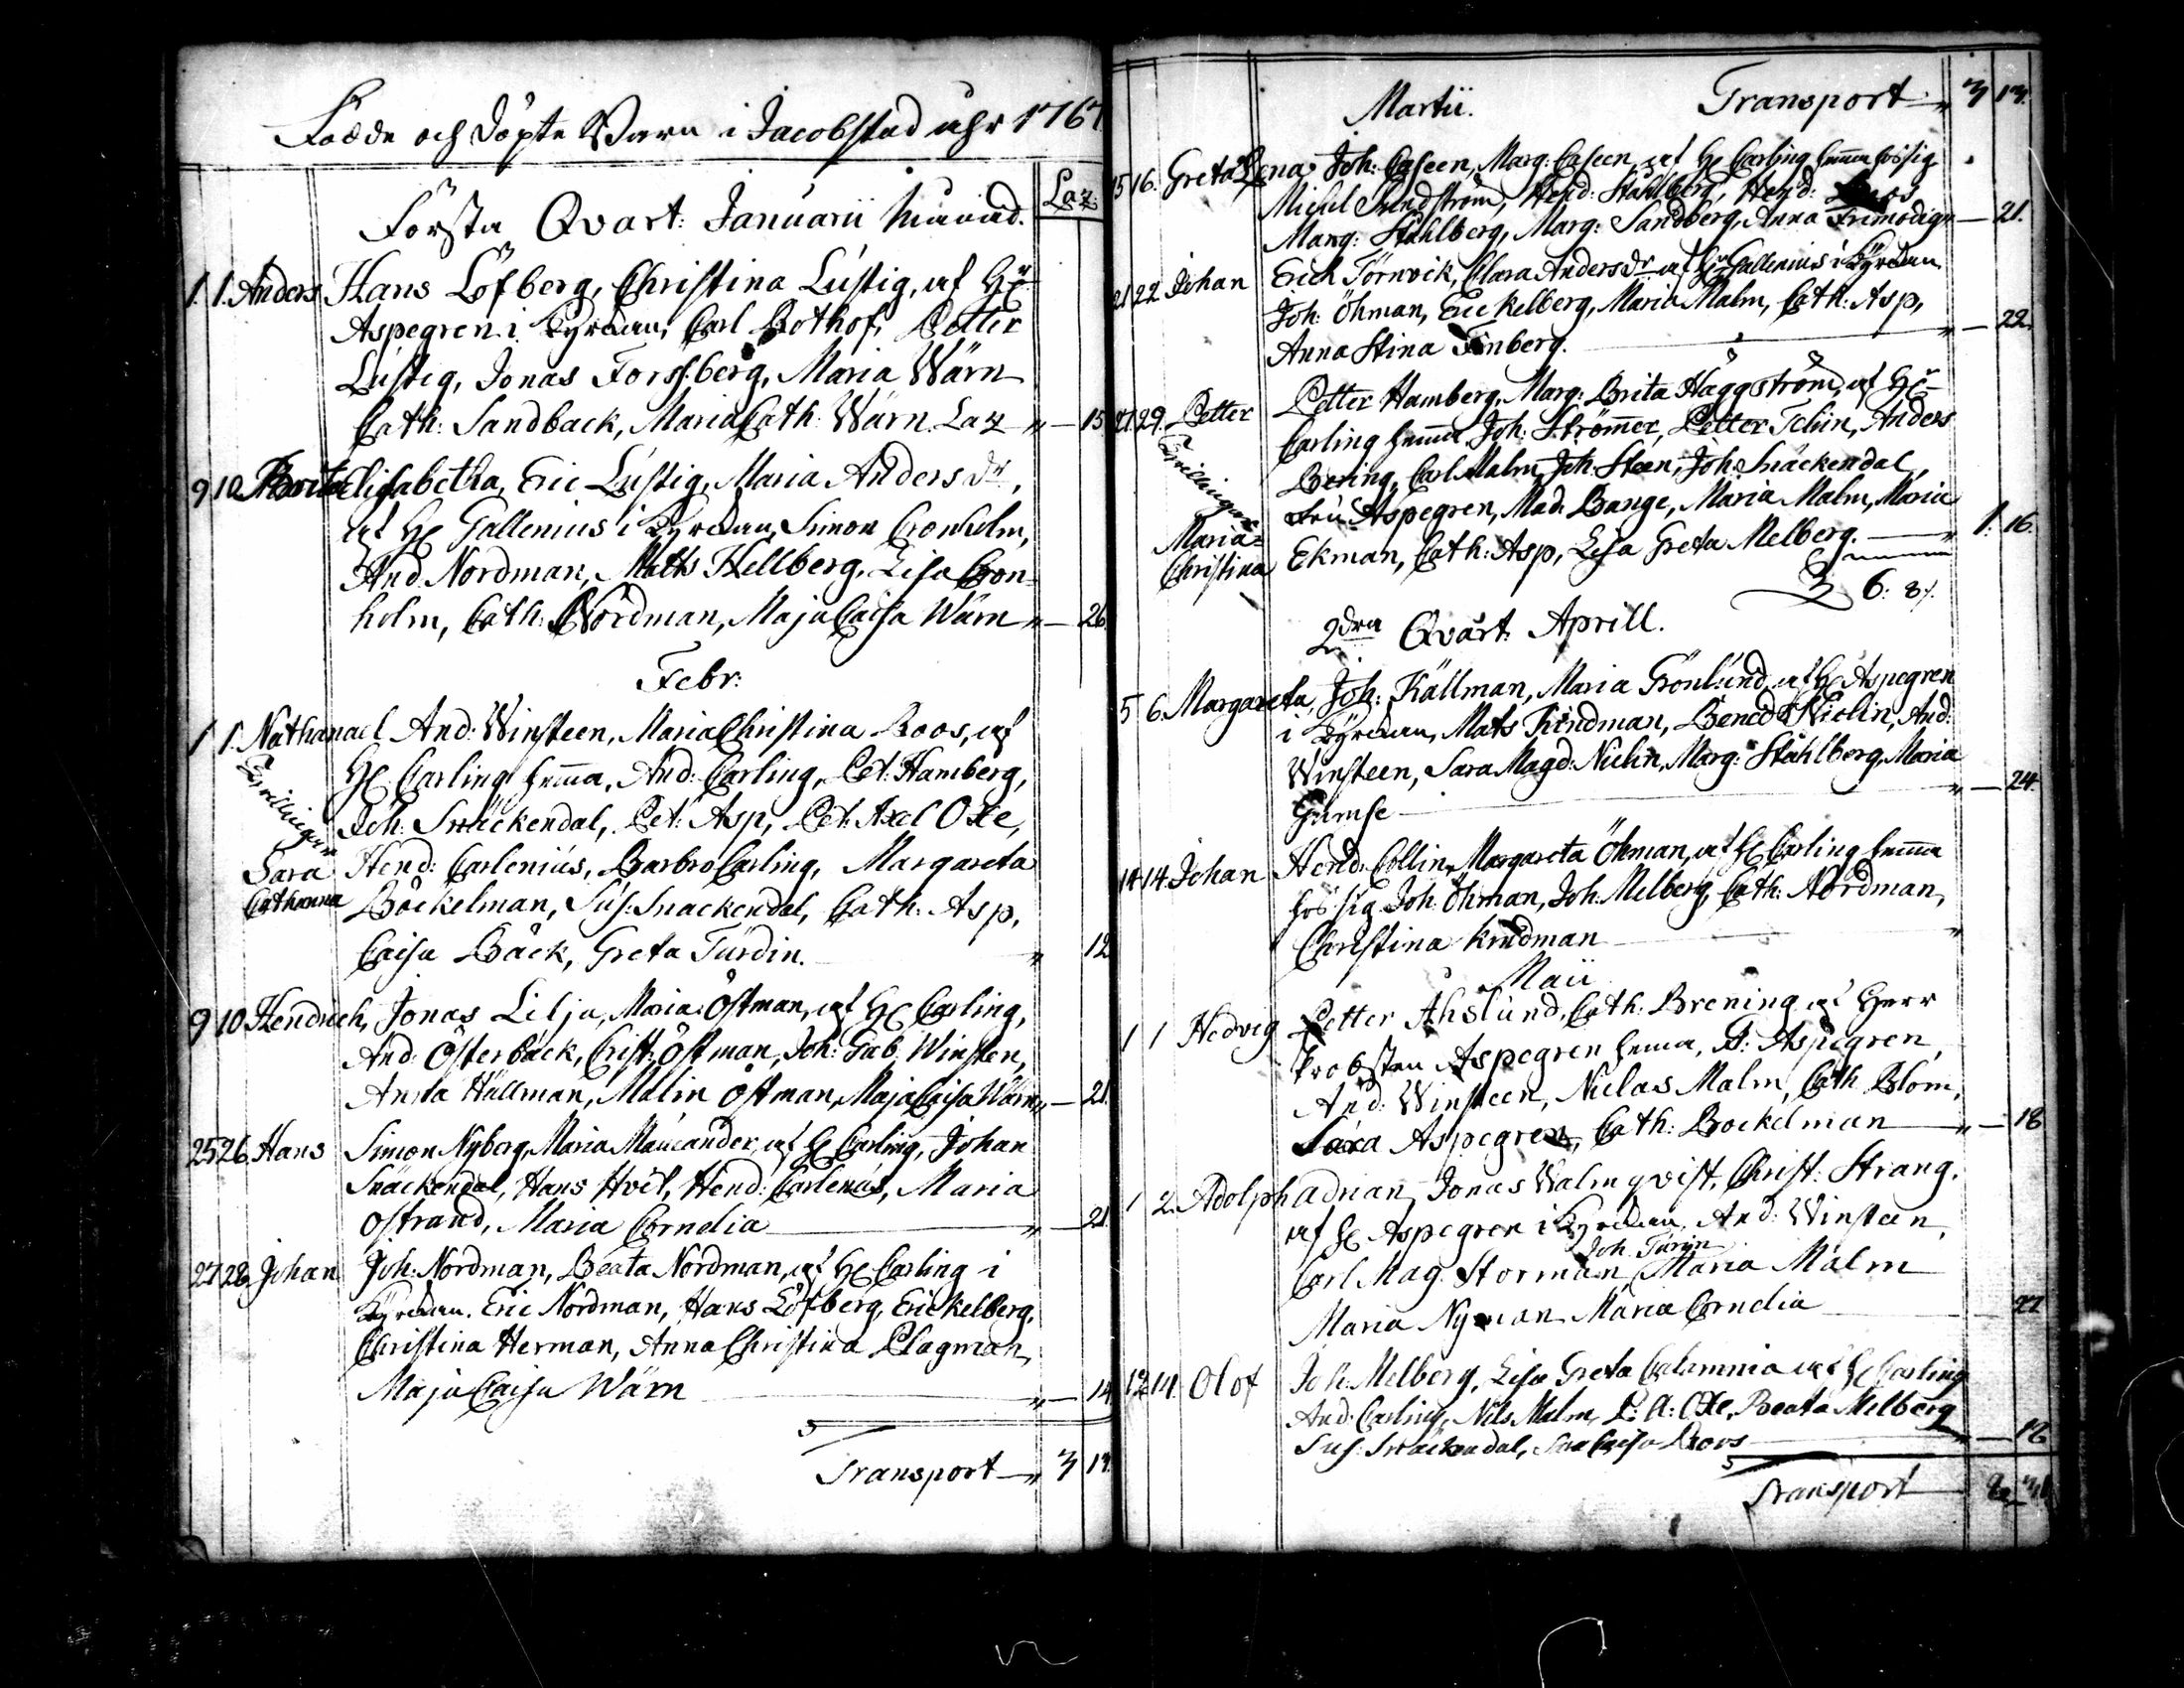 Födde och döpte Barn i Jacobstad åhr 1767
Laz:
Första Qvart: Januarii Månad.
1. 1. Anders Hans Löfberg, Christina Lustig, af Hr
Aspegren i Kyrckan, Carl Bothof, Petter
Lustig, Jonas Forssberg, Maria Wärn
Cath: Sandback, Maria Cath: Wärn. Laz " — 15.
9 10 Brita Elisabetha, Eric Lustig, Maria Andersdr,
af H: Gallenius i Kyrckan, Simon Cronholm,
And Nordman, Matts Hellberg, Lisa Cron=
holm, Cath: Nordman, Maja Caisa Wärn " — 26.
Febr:
1 1. Nathanael And: Winsteen, Maria Christina Boos, af
H: Carling hemma, And: Carling, Pet: Hamberg,
Tvillingar
Joh: Snäckendal, Pet: Asp, Pet: Axel Oxe,
Sara Hend: Carlenius, Barbro Carling, Margareta
Catharina Böckelman, Sus: Snackendal, Cath: Asp,
Caisa Bäck, Greta Turdin. " 12
9 10 Hendrich, Jonas Lilja, Maria Östman, af H: Carling,
And: Österback, Crist: Östman, Joh: Gab. Winsten,
Anna Hällman, Malin Östman, Maja Caisa Wärn " — 21.
25 26. Hans Simon Nyberg, Maria af H: Carling, Johan
Snäckendal, Hans Hvit, Hend: Carlenius, Maria
Ostrand, Maria Cornelia " — 21.
27 28 Johan Joh: Nordman, Beata Nordman, af H: Carling i
Kyrckan. Eric Nordman, Hans Löfberg, Eric kelberg,
Christina Herman, Anna Christina Plagman,
Maja Caisa Wärn " — 14
Transport — " 3 13.
Martii. Transport — " 3 13.
15 16. Greta Lena Joh: Caseen, Marg: Caseen, af H: Carling hemma hos sig
Michel Sundström, Hend: Ståhlberg, Hend: Boos
Marg: Ståhlberg, Marg: Sandberg, Anna Frimodig " — 21.
21 22 Johan Erich Törnvik, Clara Andersdr af Hr Gallenius i Kyrckan
Joh: Öhman, Eric kelberg, Maria Malm, Cath: Asp,
Anna Stina Finberg. " — 22.
27 29. Petter Petter Hamberg, Marg: Brita Häggström, af Hr
Carling hemma, Joh: Strömer, Petter Telin, Anders
Tvillingar
Bering, Carl Malm, Joh: Steen, Joh: Snäckendal,
Fru Aspegren, Mad. Bange, Maria Malm, Maria
Maria= Christina Ekman, Cath: Asp, Lisa Greta Melberg. — " 1. 16.
6: 8/.
2dra Qvart: Aprill.
5 6. Margareta, Joh: Källman, Maria Grönlund, af H: Aspegren
i Kyrckan, Mats Kindman, Bened: Niclin, And:
Winsteen, Sara Magd: Niclin, Marg: Ståhlberg, Maria
Grimse " — 24.
14 14. Johan Hend: Collin, Margareta Öhman, af H: Carling hemma
hos sig Joh: Öhman, Joh: Melberg, Cath: Nordman,
Christina Kindman "
Maii
1 1 Hedvig Petter Ahslund, Cath: Brening af Herr
Probsten Aspegren hema, G: Aspegren,
And: Winsteen, Niclas Malm, Cath Blom,
Sara Aspegren, Cath: Bockelman " — 18
1 2. Adolph Adrian, Jonas Walmqvist, Christ: Strang,
af H: Aspegren i Kyrckan, And: Winsteen,
Joh. Turin
Carl Mag. Storman, Maria Malm
Maria Nyman Maria Cornelia 27
12 14. Olof Joh: Melberg, Lisa Greta Calamnia af H: Carling
And: Carling, Nils Malm, P: A: Oxe, Beata Melberg
Sus: Snäckendal, Sara Caisa Boos " — 12
Transport